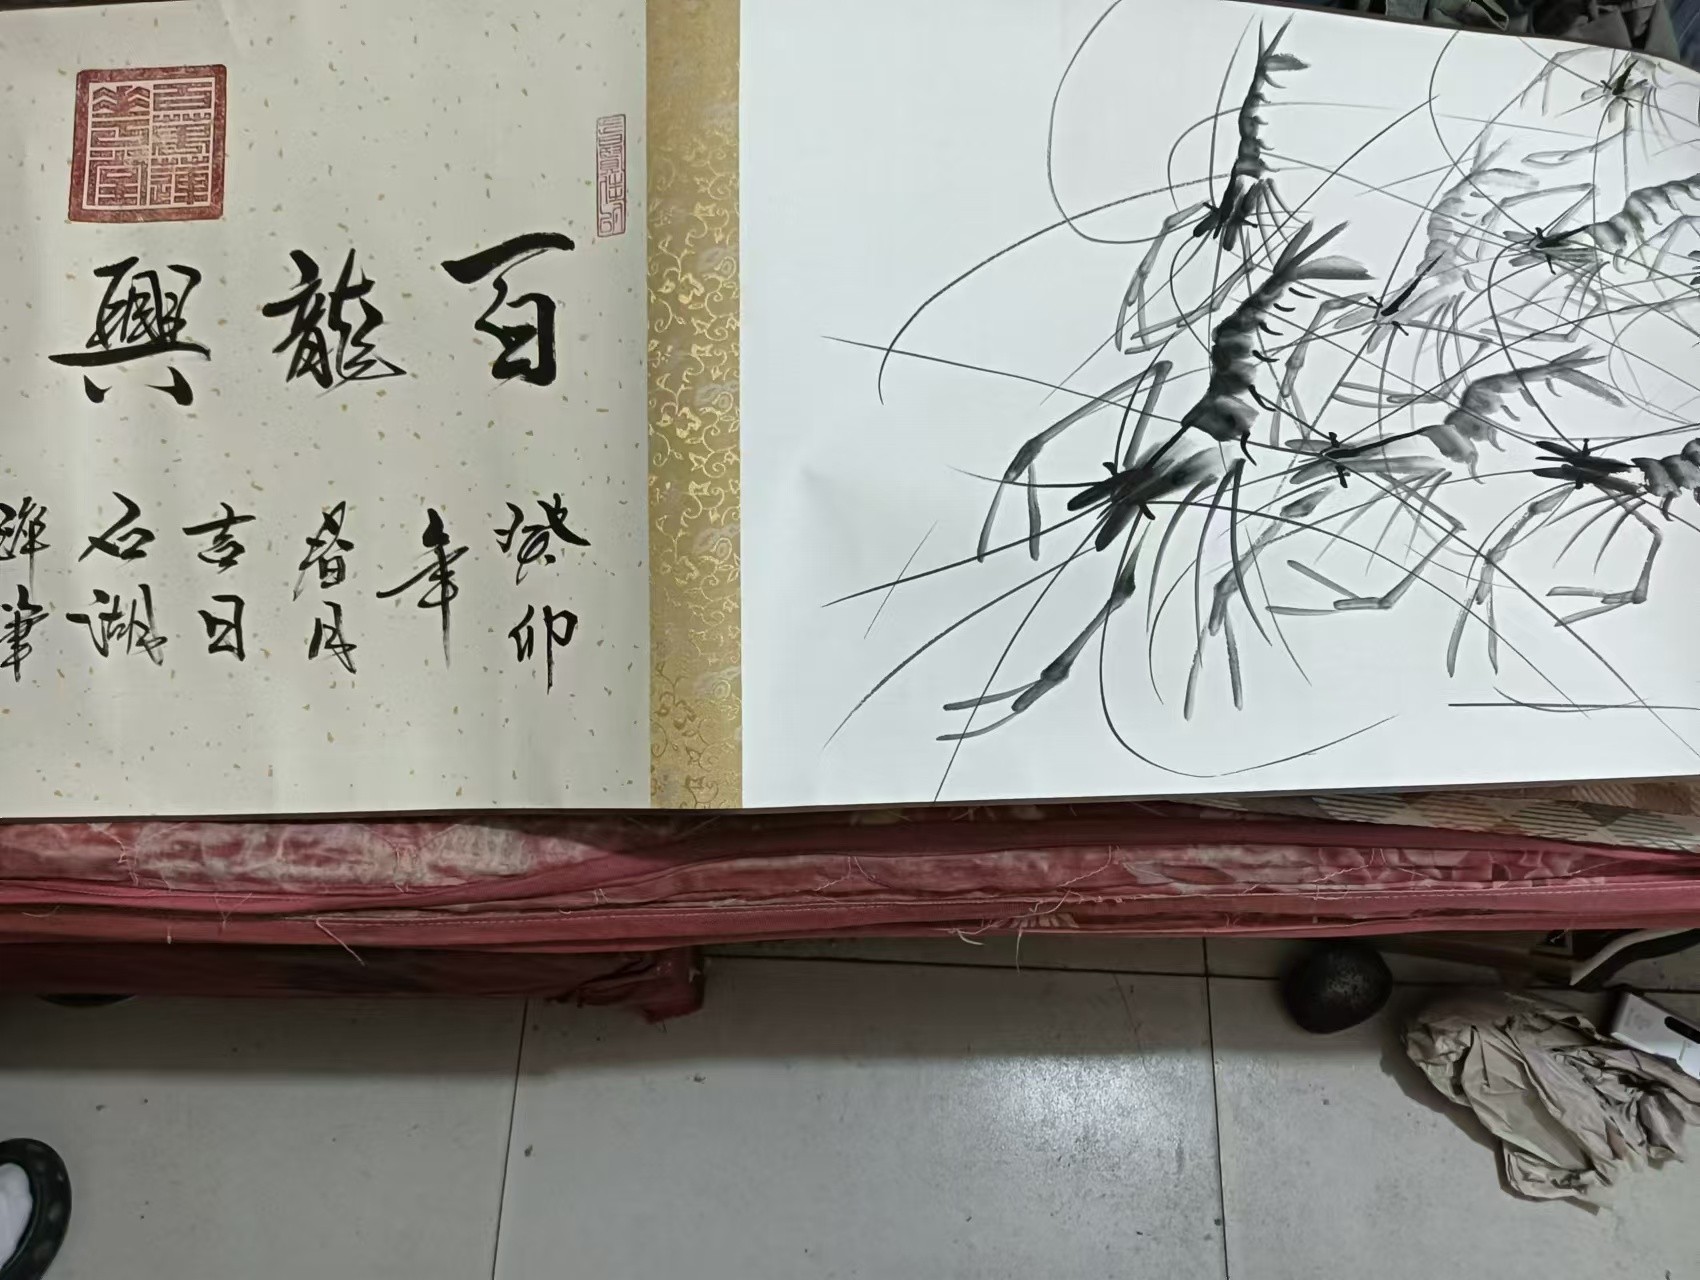 百龍興
癸卯
年
春月
吉日
石湖
筆